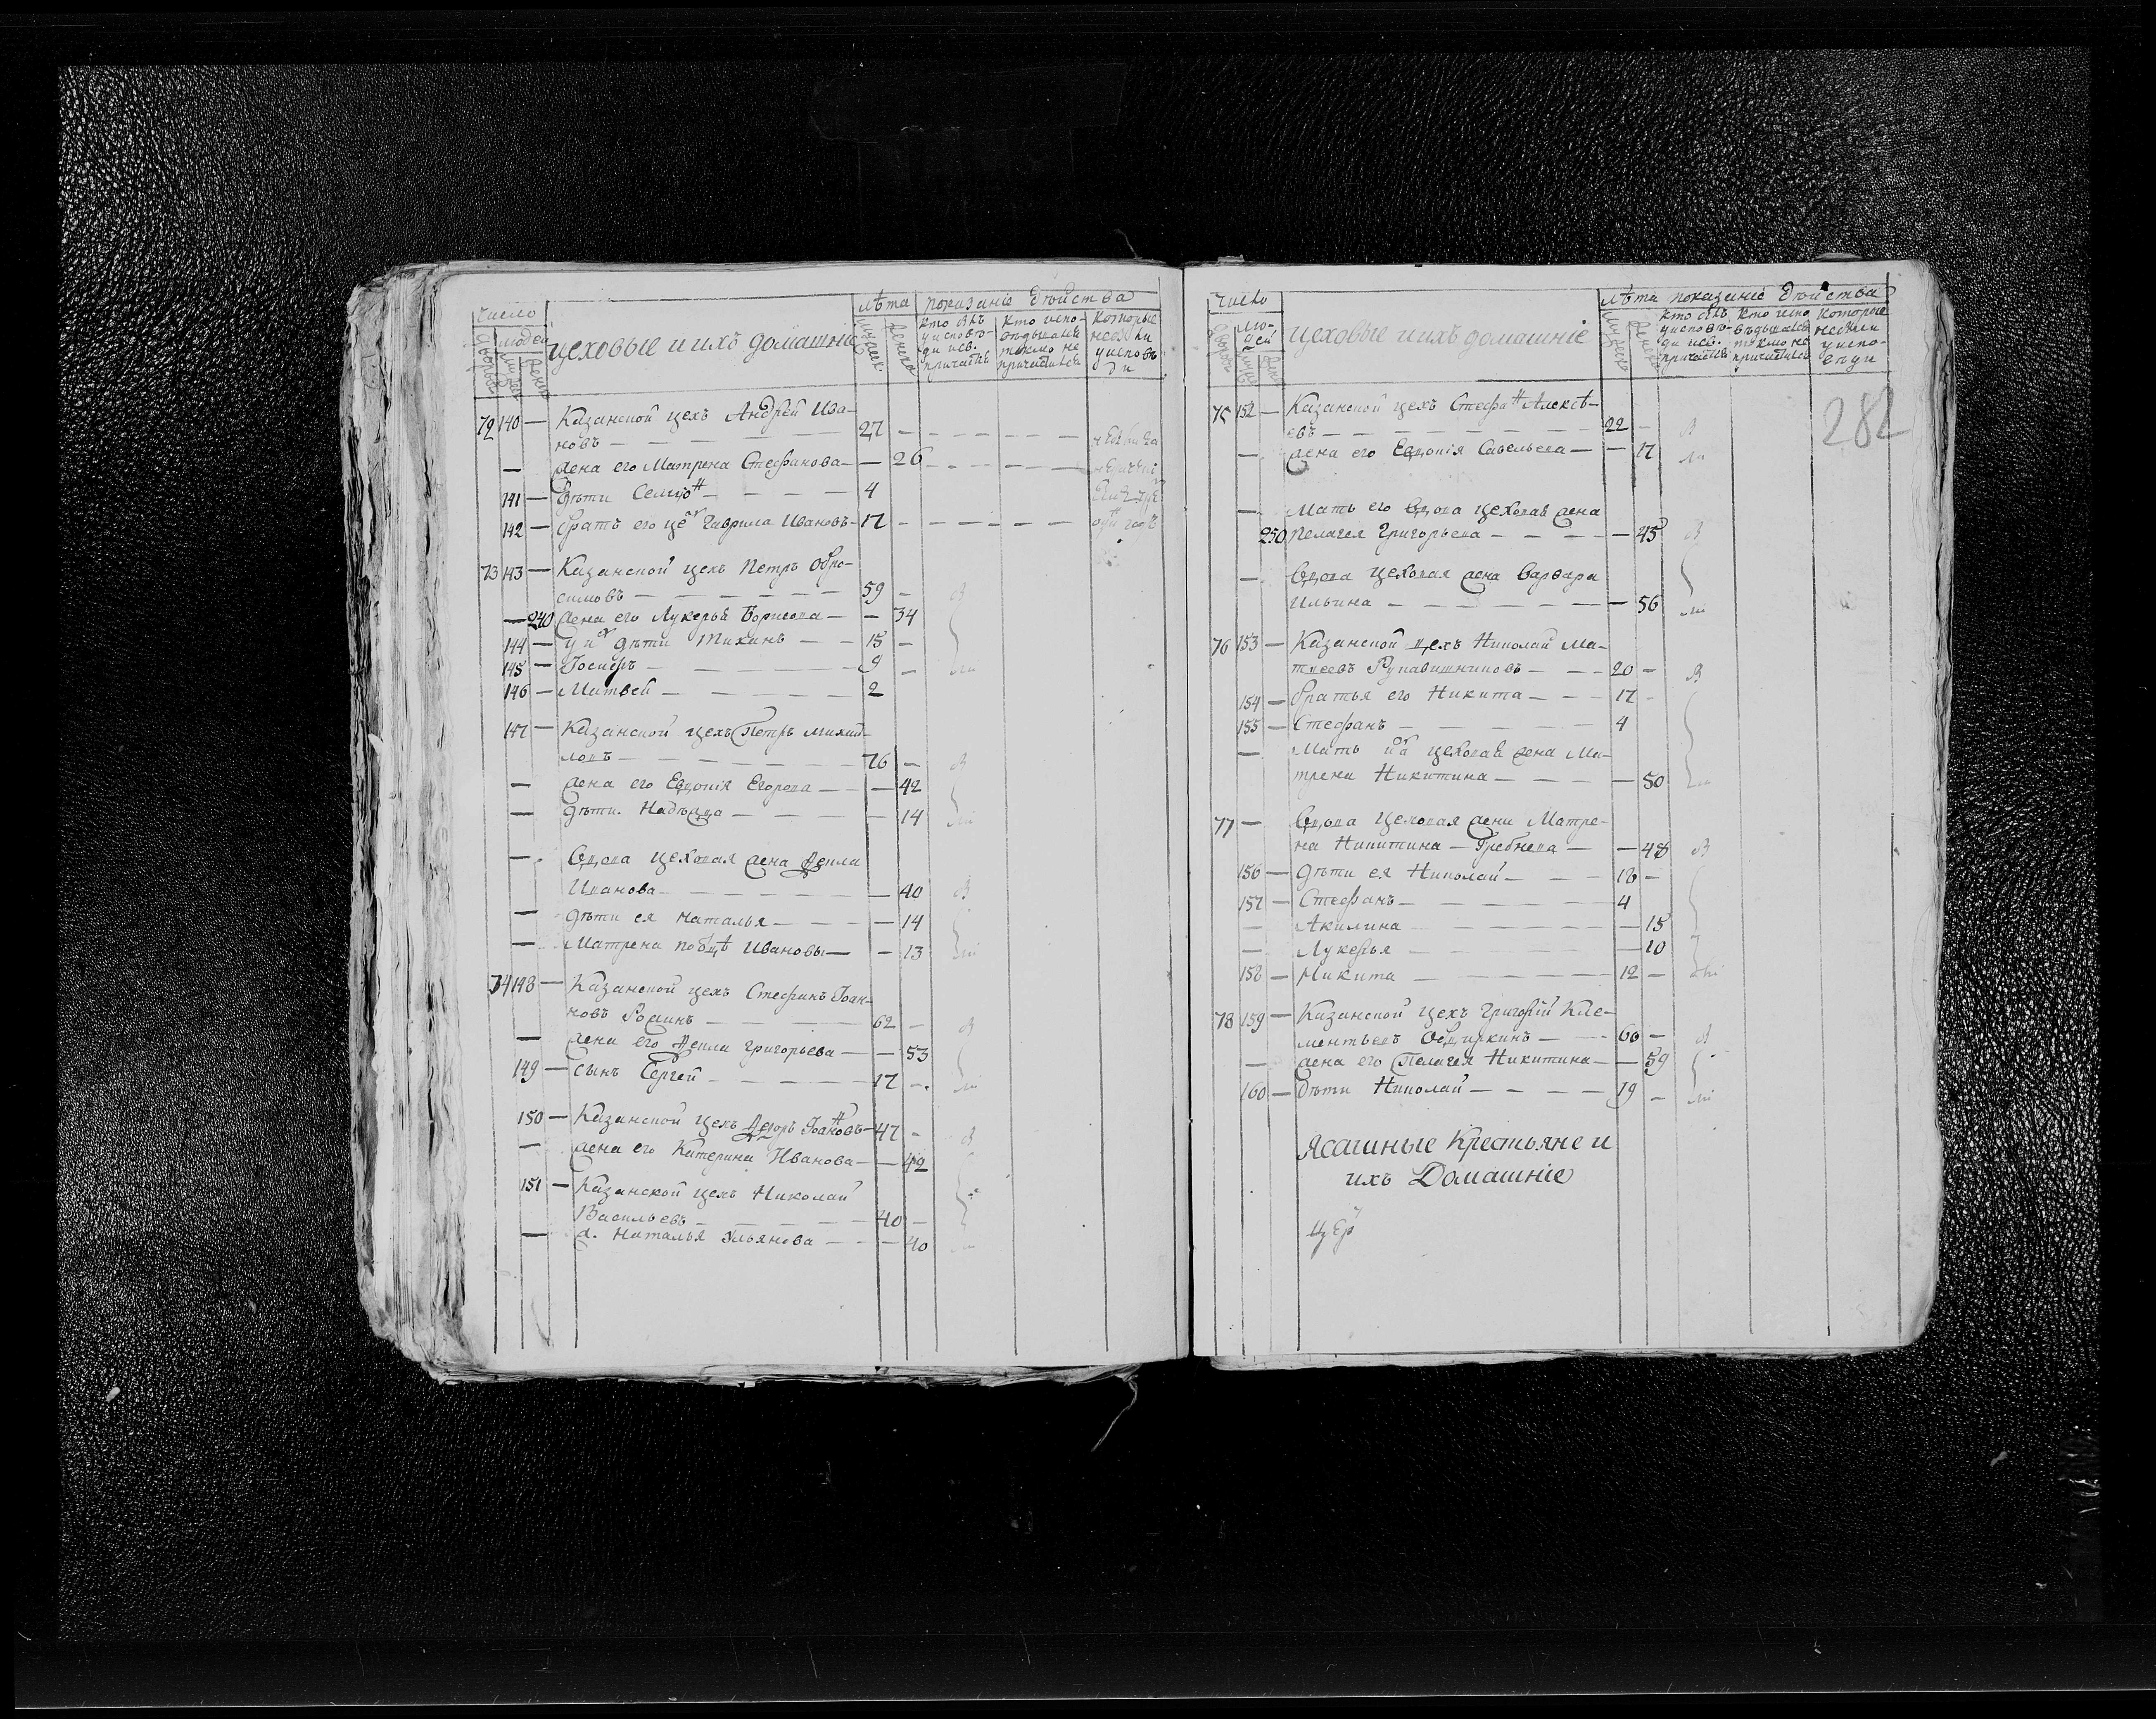 число
людей
цеховые и ихъ домашнїе
лѣта показанїе дѣйства
кто былъ у исповѣди и св. причастїя
кто исповѣдывался токмо не причастился
которые не были у исповѣди
72 140 — Казанской цехъ Андрей Ива-
новъ — 27 —
— жена его Матрена Стефанова — — 26
141 — дѣти Семіонъ — 4
142 — братъ его цех Гаврила Ивановъ — 17
73 143 — Казанской цехъ Петръ Обро-
симовъ — 59 —
— 240 жена его Лукерья Борисова — — 34
144 — у них дѣти Тихинъ — 15 —
145 — Іосифъ — 9 —
146 — Матвей — 2
147 — Казанской цехъ Петръ Михай-
ловъ — 76 —
— жена его Евдокія Егорова — — 42
— дѣти. Надѣжда — 14
— Вдова цеховая жена Фекла
Иванова — — 40
— дѣти ея Наталья — — 14
— Матрена Ивановы — — 13
74 148 — Казанской цехъ Стефанъ Іоан-
новъ — 62 —
— жена его Фекла Григорьева — — 53
149 — сынъ Сергей — 17 —
150 — Казанской цехъ Федоръ Іоанновъ — 47 —
— жена его Катерина Иванова — — 42
151 — Казанской цехъ Николай
Васильевъ — 40 —
— ж. Наталья Ульянова — — 40
число
людей
цеховые и ихъ домашнїе
лѣта показанїе дѣйства
кто былъ у исповѣди и св. причастїя
кто исповѣдывался токмо не причастился
которые не были у исповѣди
282
75 152 — Казанской цехъ Стефанъ Алексѣ-
евъ — 22 —
— жена его Евдокія Савельева — — 17
— Мать его вдова цеховая жена
250 Пелагея Григорьева — — 45
— Вдова цеховая жена Варвара
Ильина — — 56
76 153 — Казанской цехъ Николай Ма-
твеевъ Рукавишниковъ — 20 —
154 — братья его Никита — 17 —
155 — Стефанъ — 4
— Мать их цеховая жена Ма-
трена Никитина — — 50
77 — Вдова цеховая жена Матре-
на Никитина — Гребнева — — 48
156 — дѣти ея Николай — 18 —
157 — Стефанъ — 4
— Акилина — 15
— Лукерья — 10
158 — Никита — 12 —
78 159 — Казанской цехъ Григорїй Кле-
ментьевъ — 60 —
— жена его Пелагея Никитина — — 59
160 — дѣти Николай — 19 —
Ясашные Крестьяне и
ихъ Домашнїе